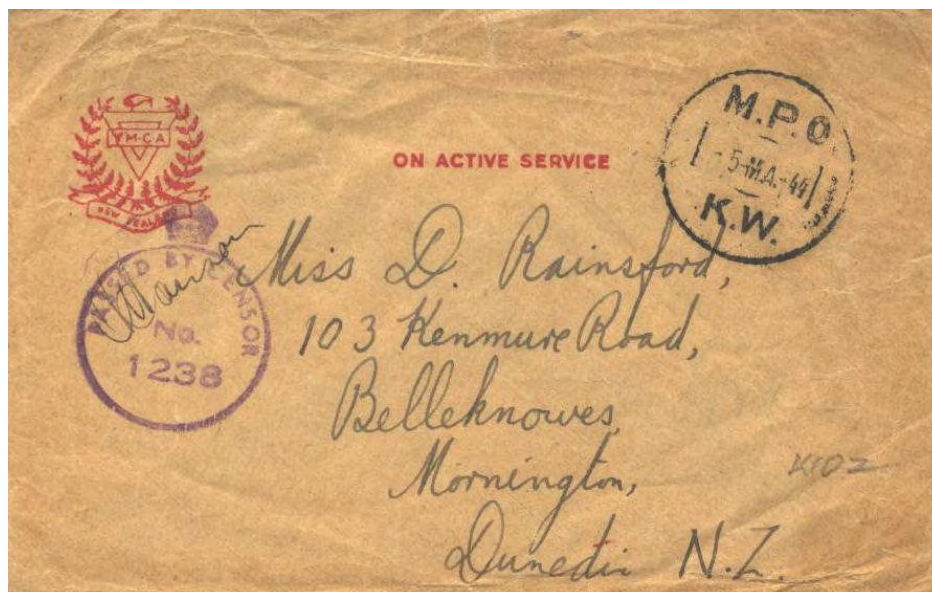 YM·C·A
NEW ZEALAND
ON ACTIVE SERVICE
M.P.O.
5-MA.-44
K.W.
PASSED BY CENSOR
No.
1238
Miss D. Rainsford,
103 Kenmure Road,
Belleknowes,
Mornington,
Dunedin N.Z.